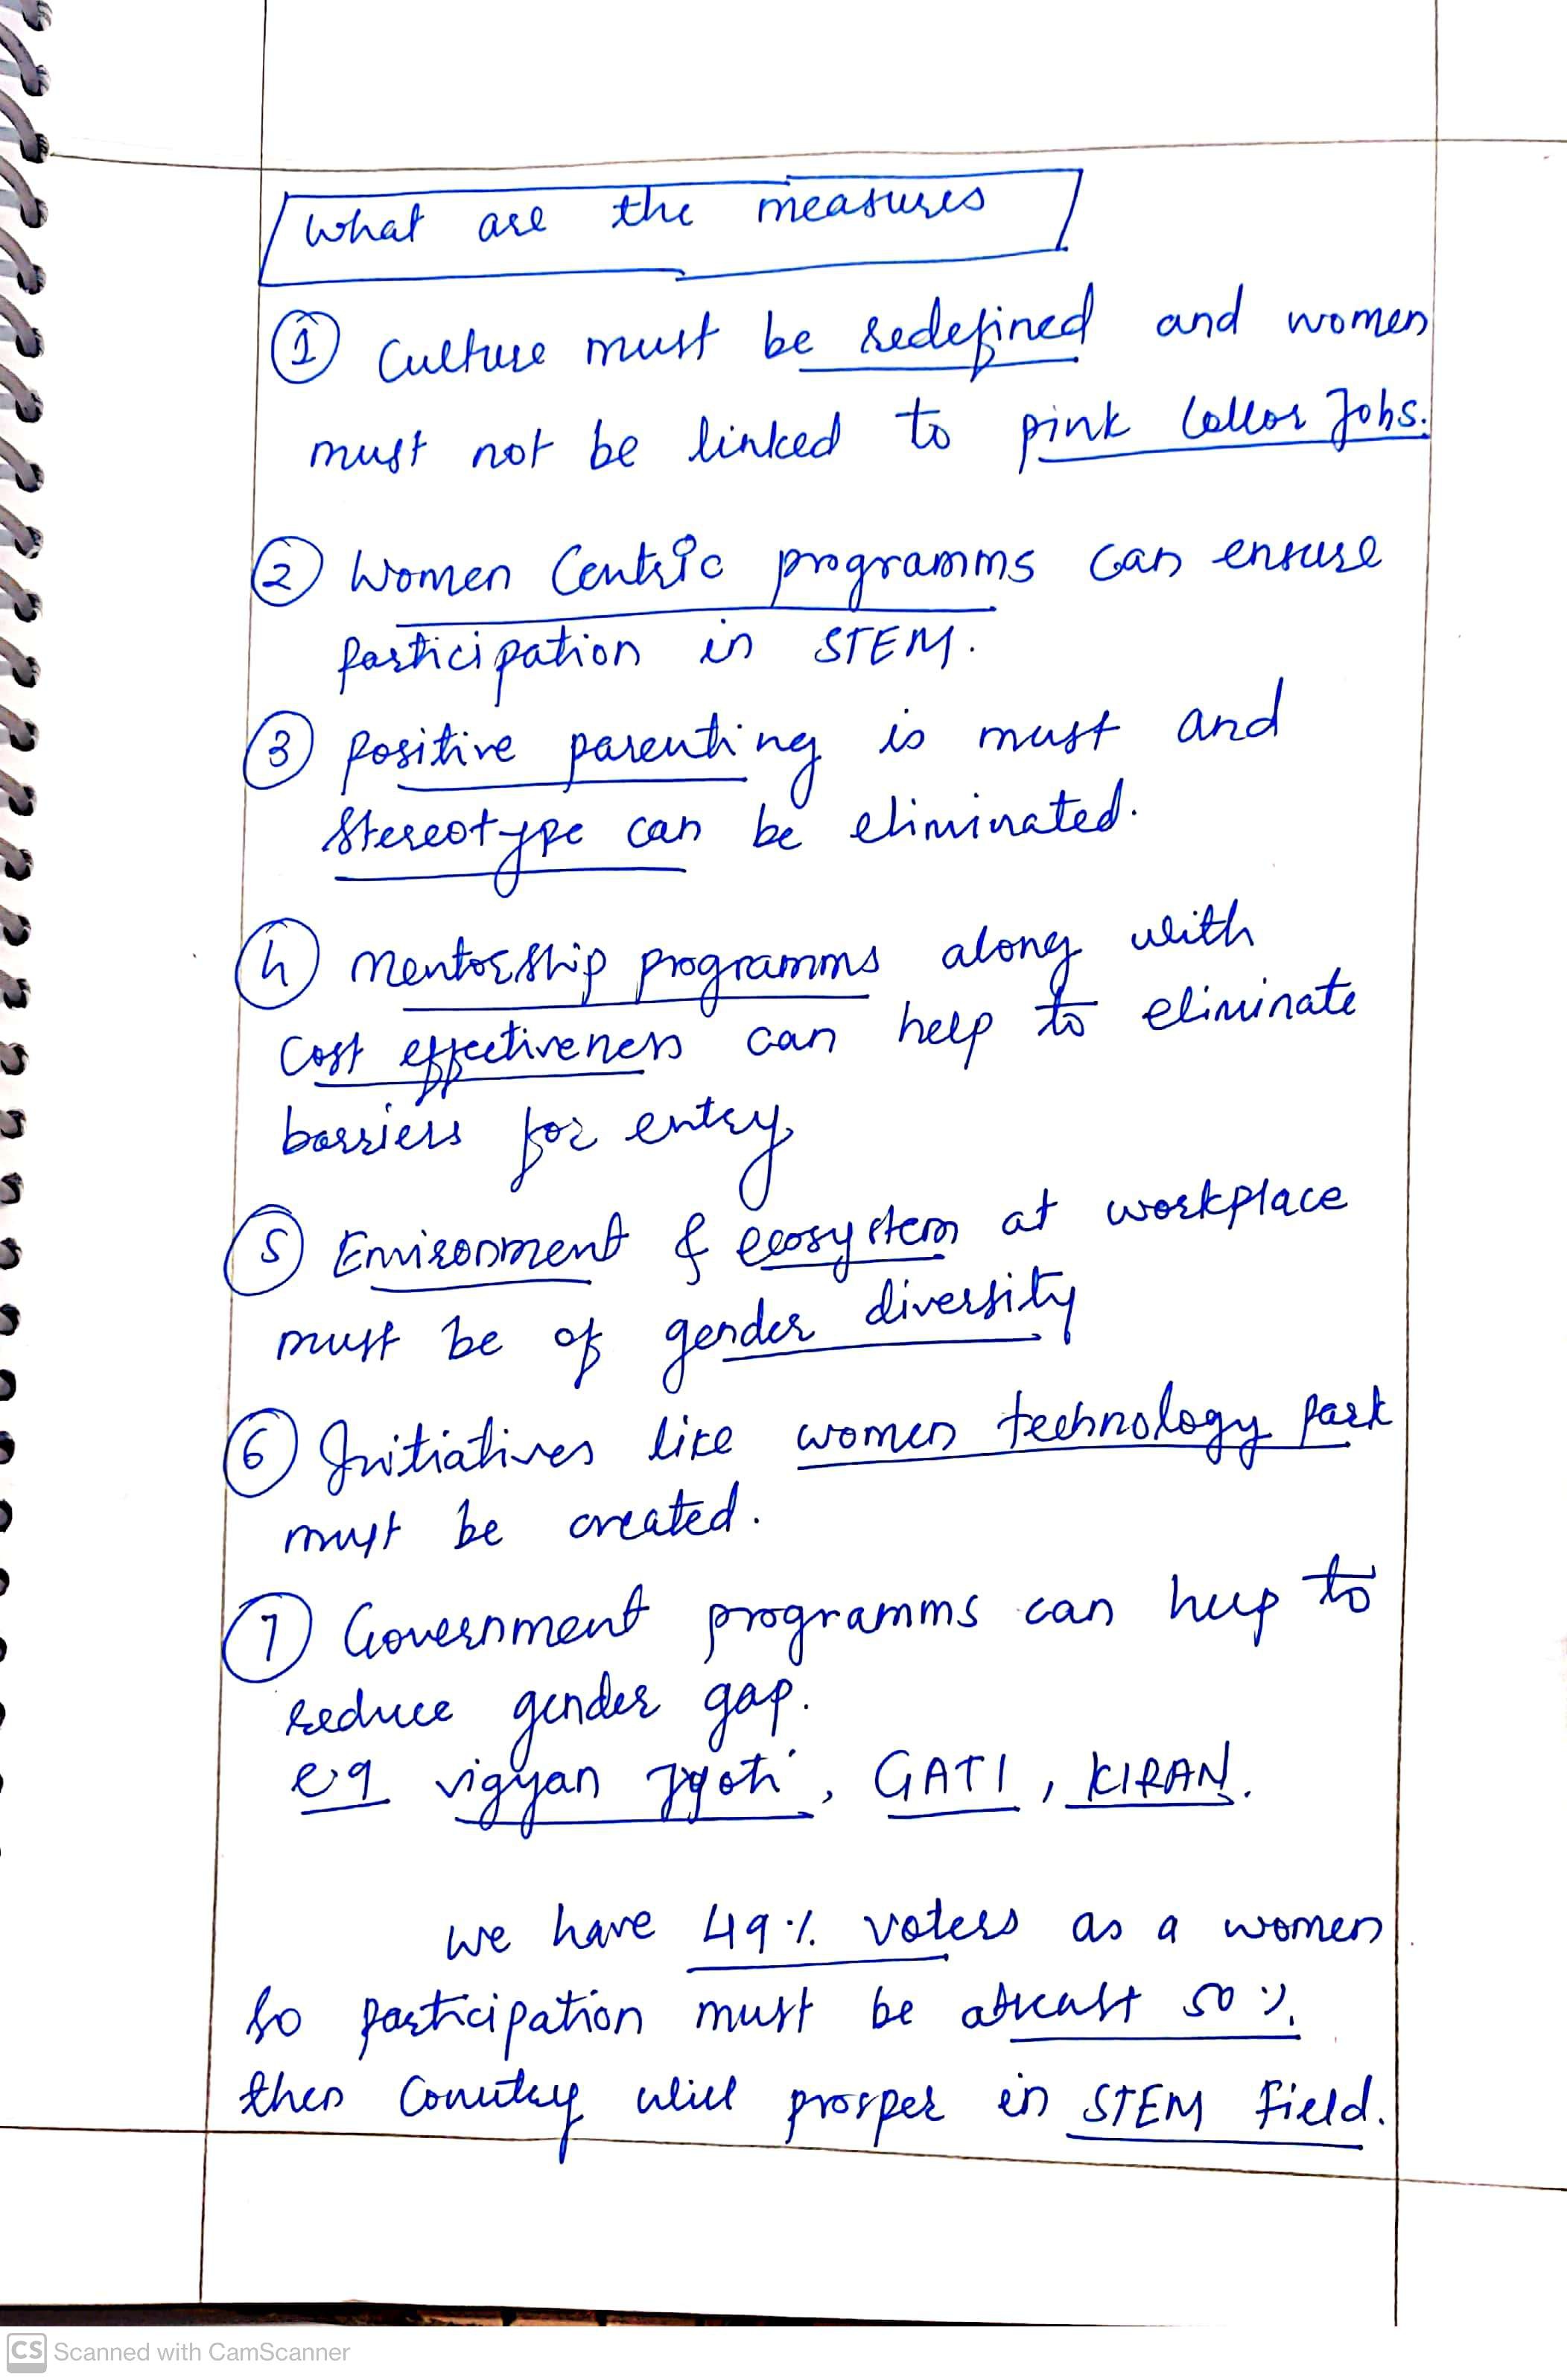 What are the measures
① Culture must be redefined and women
must not be linked to pink Collor Jobs.
② Women Centric programms can ensure
participation in STEM.
③ positive parenting is must and
Stereotype can be eliminated.
④ Mentorship programms along with
Cost effectiveness can help to eliminate
barriers for entry
⑤ Environment & ecosystem at workplace
must be of gender diversity
⑥ Initiatives like women technology park
must be created.
⑦ Government programms can help to
reduce gender gap.
eg vigyan Jyoti, GATI, KIRAN.
We have 49% voters as a women
So participation must be atleast 50%
then Country will prosper in STEM field.
CS Scanned with CamScanner